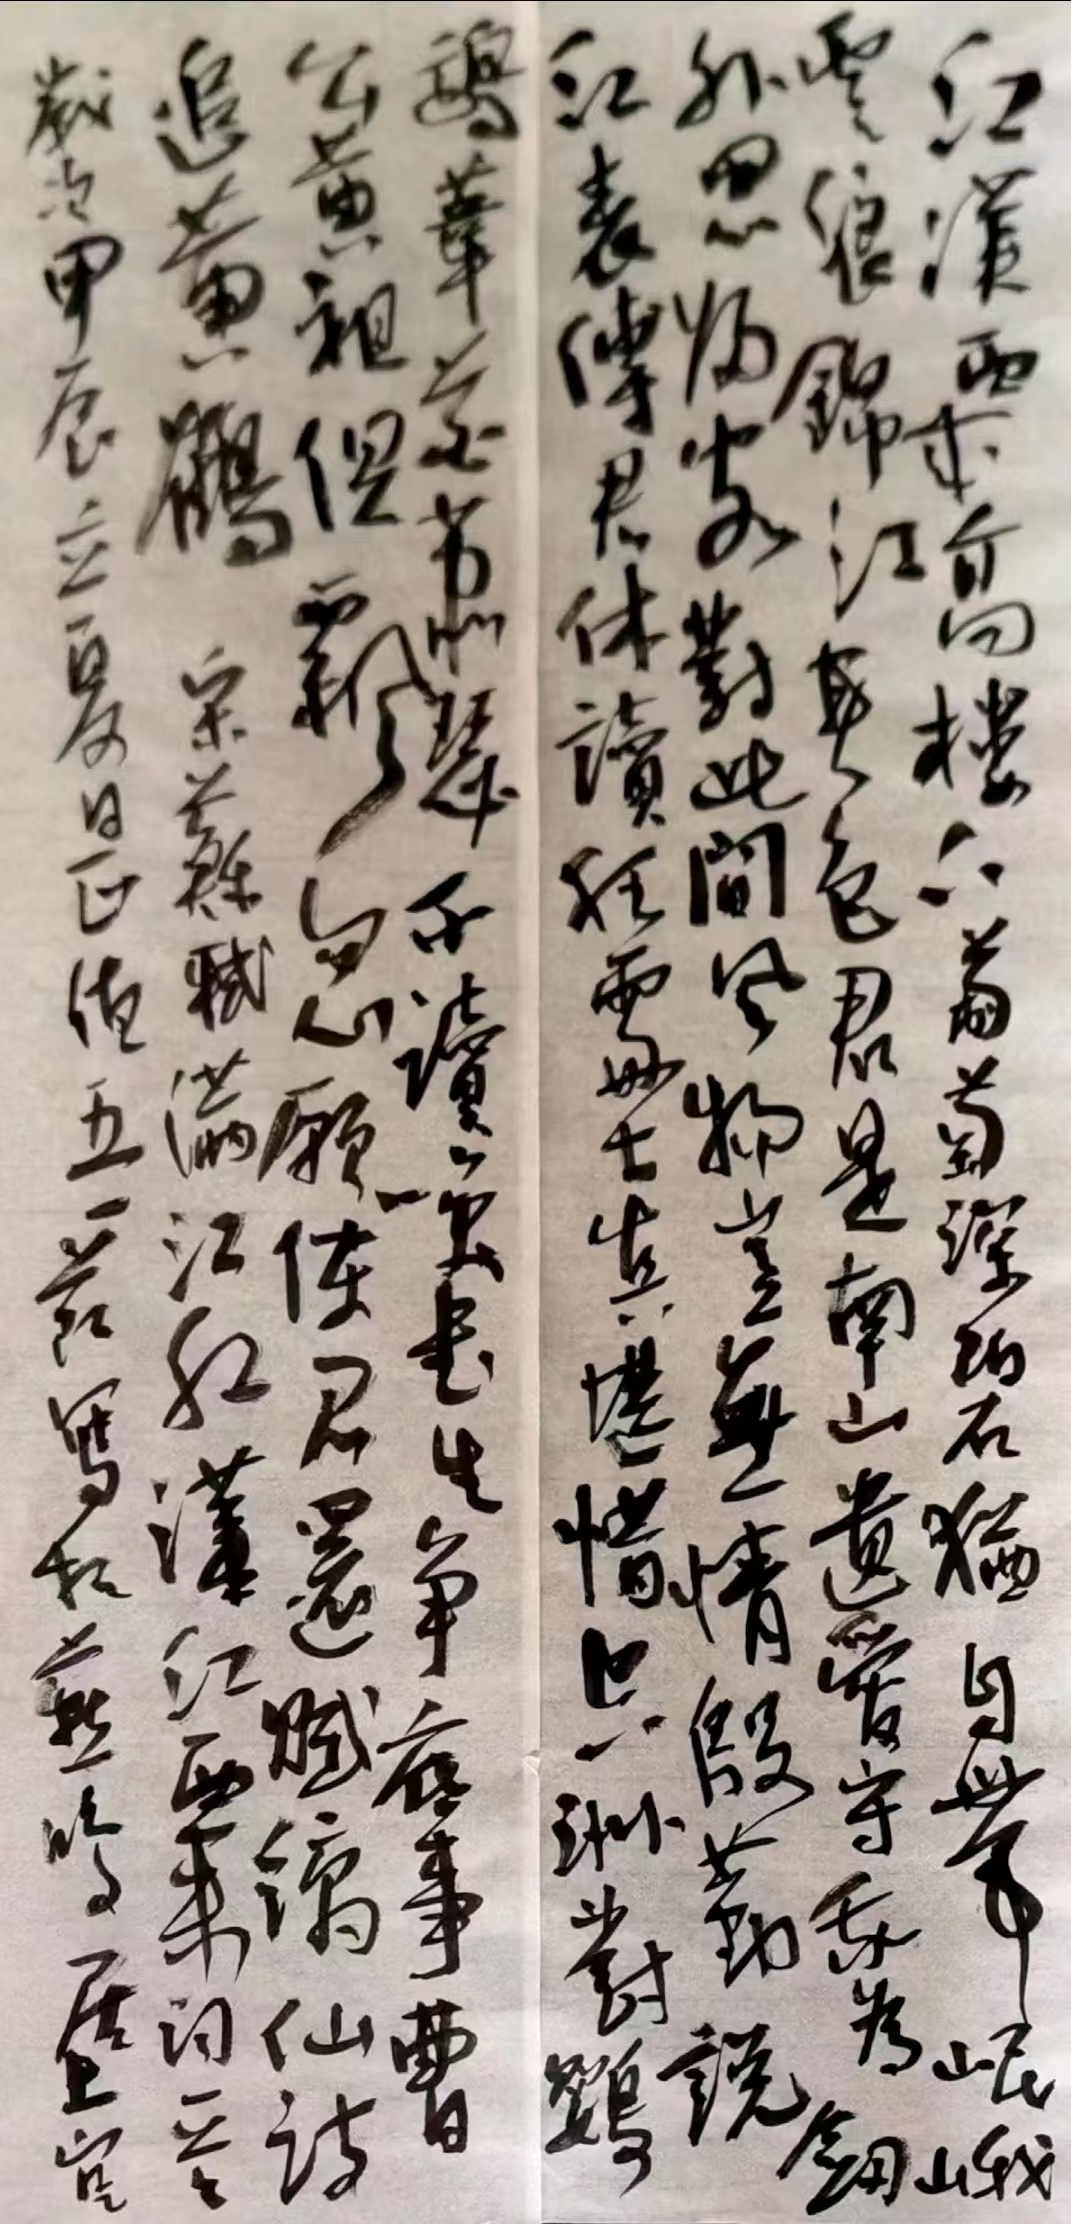 江漢西來高樓下葡萄深碧猶自帶岷峨
雪浪錦江春色君是南山遺愛守我為劍
外思歸客對此間風物豈無情殷勤說
江表傳君休讀狂處士真堪惜空洲對鸚
鵡葦花蕭瑟不讀笑書生爭底事曹
公黃祖俱飄忽願使君還賦謫仙詩
追黃鶴 宋蘇軾滿江紅漢江西來詞一
歲次甲辰立夏日正值五一節寫於燕鳴居上官